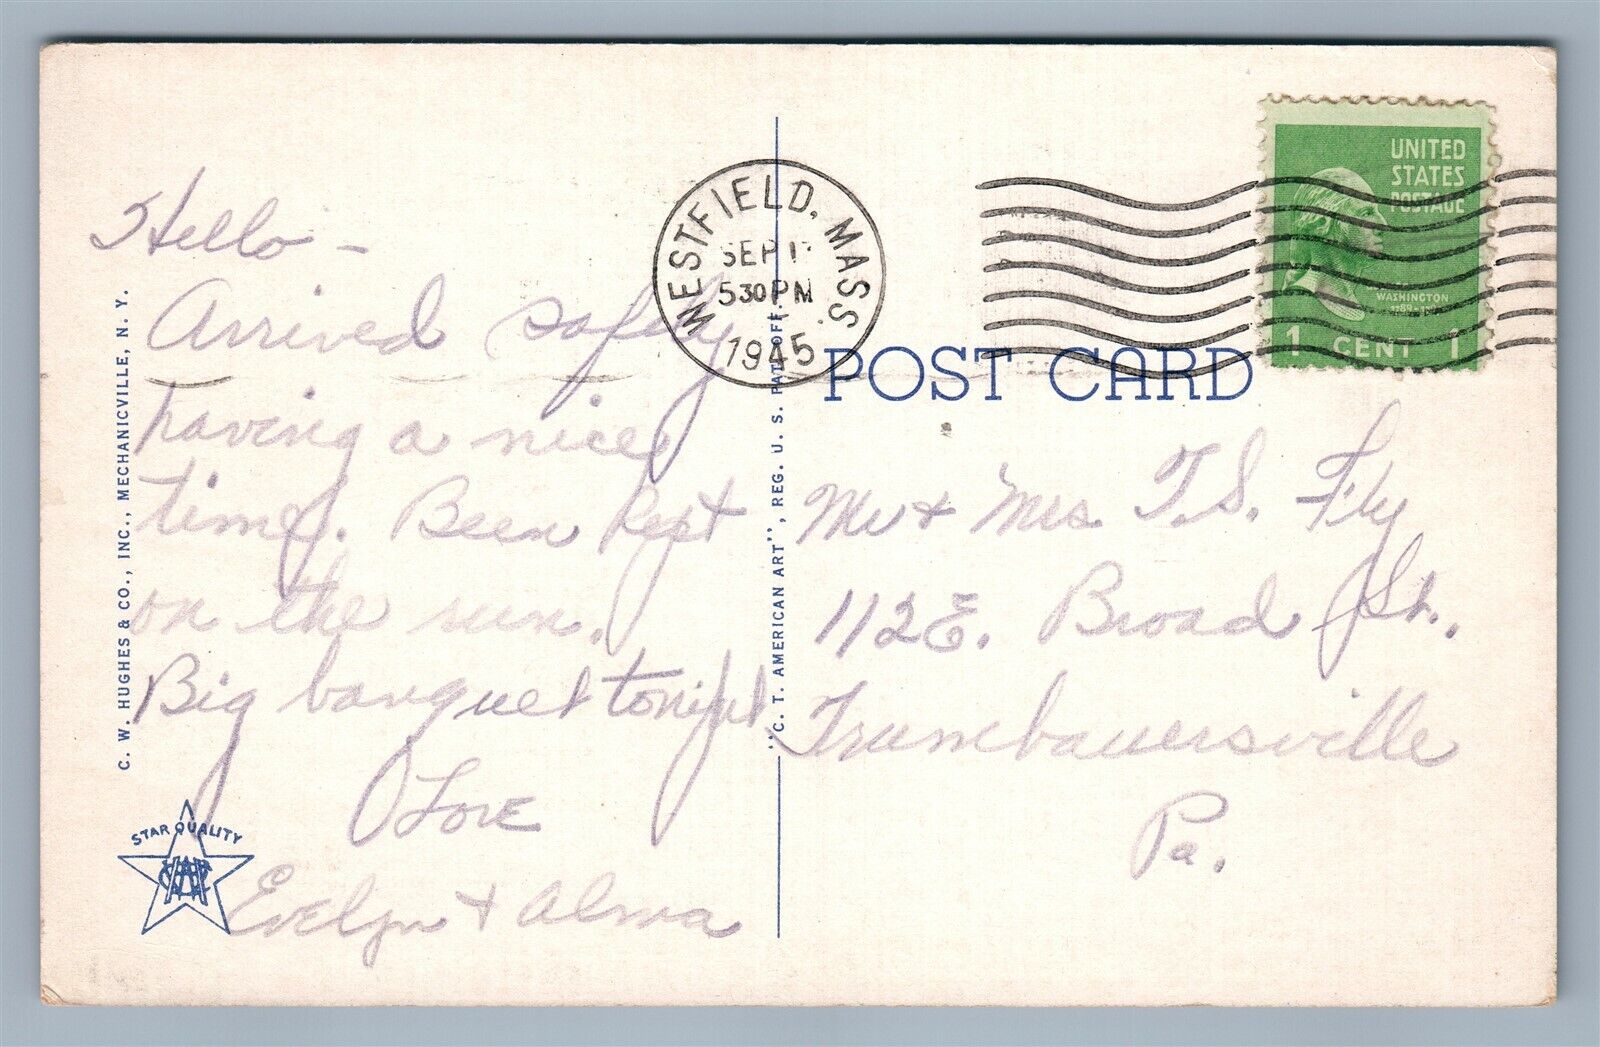 Hello -
Arrived safely
having a nice
time. Been kept
on the run.
Big banquet tonight
Love
Evelyn + Alma
C. W. HUGHES & CO., INC., MECHANICVILLE, N. Y.
STAR QUALITY
"C. T. AMERICAN ART", REG. U. S. PAT. OFF.
WESTFIELD, MASS.
SEP
530 PM
1945
UNITED
STATES
POSTAGE
WASHINGTON
1 CENT 1
POST CARD
Mr + Mrs. T. S. Fly
112 E. Broad St.,
Trumbauersville
Pa.